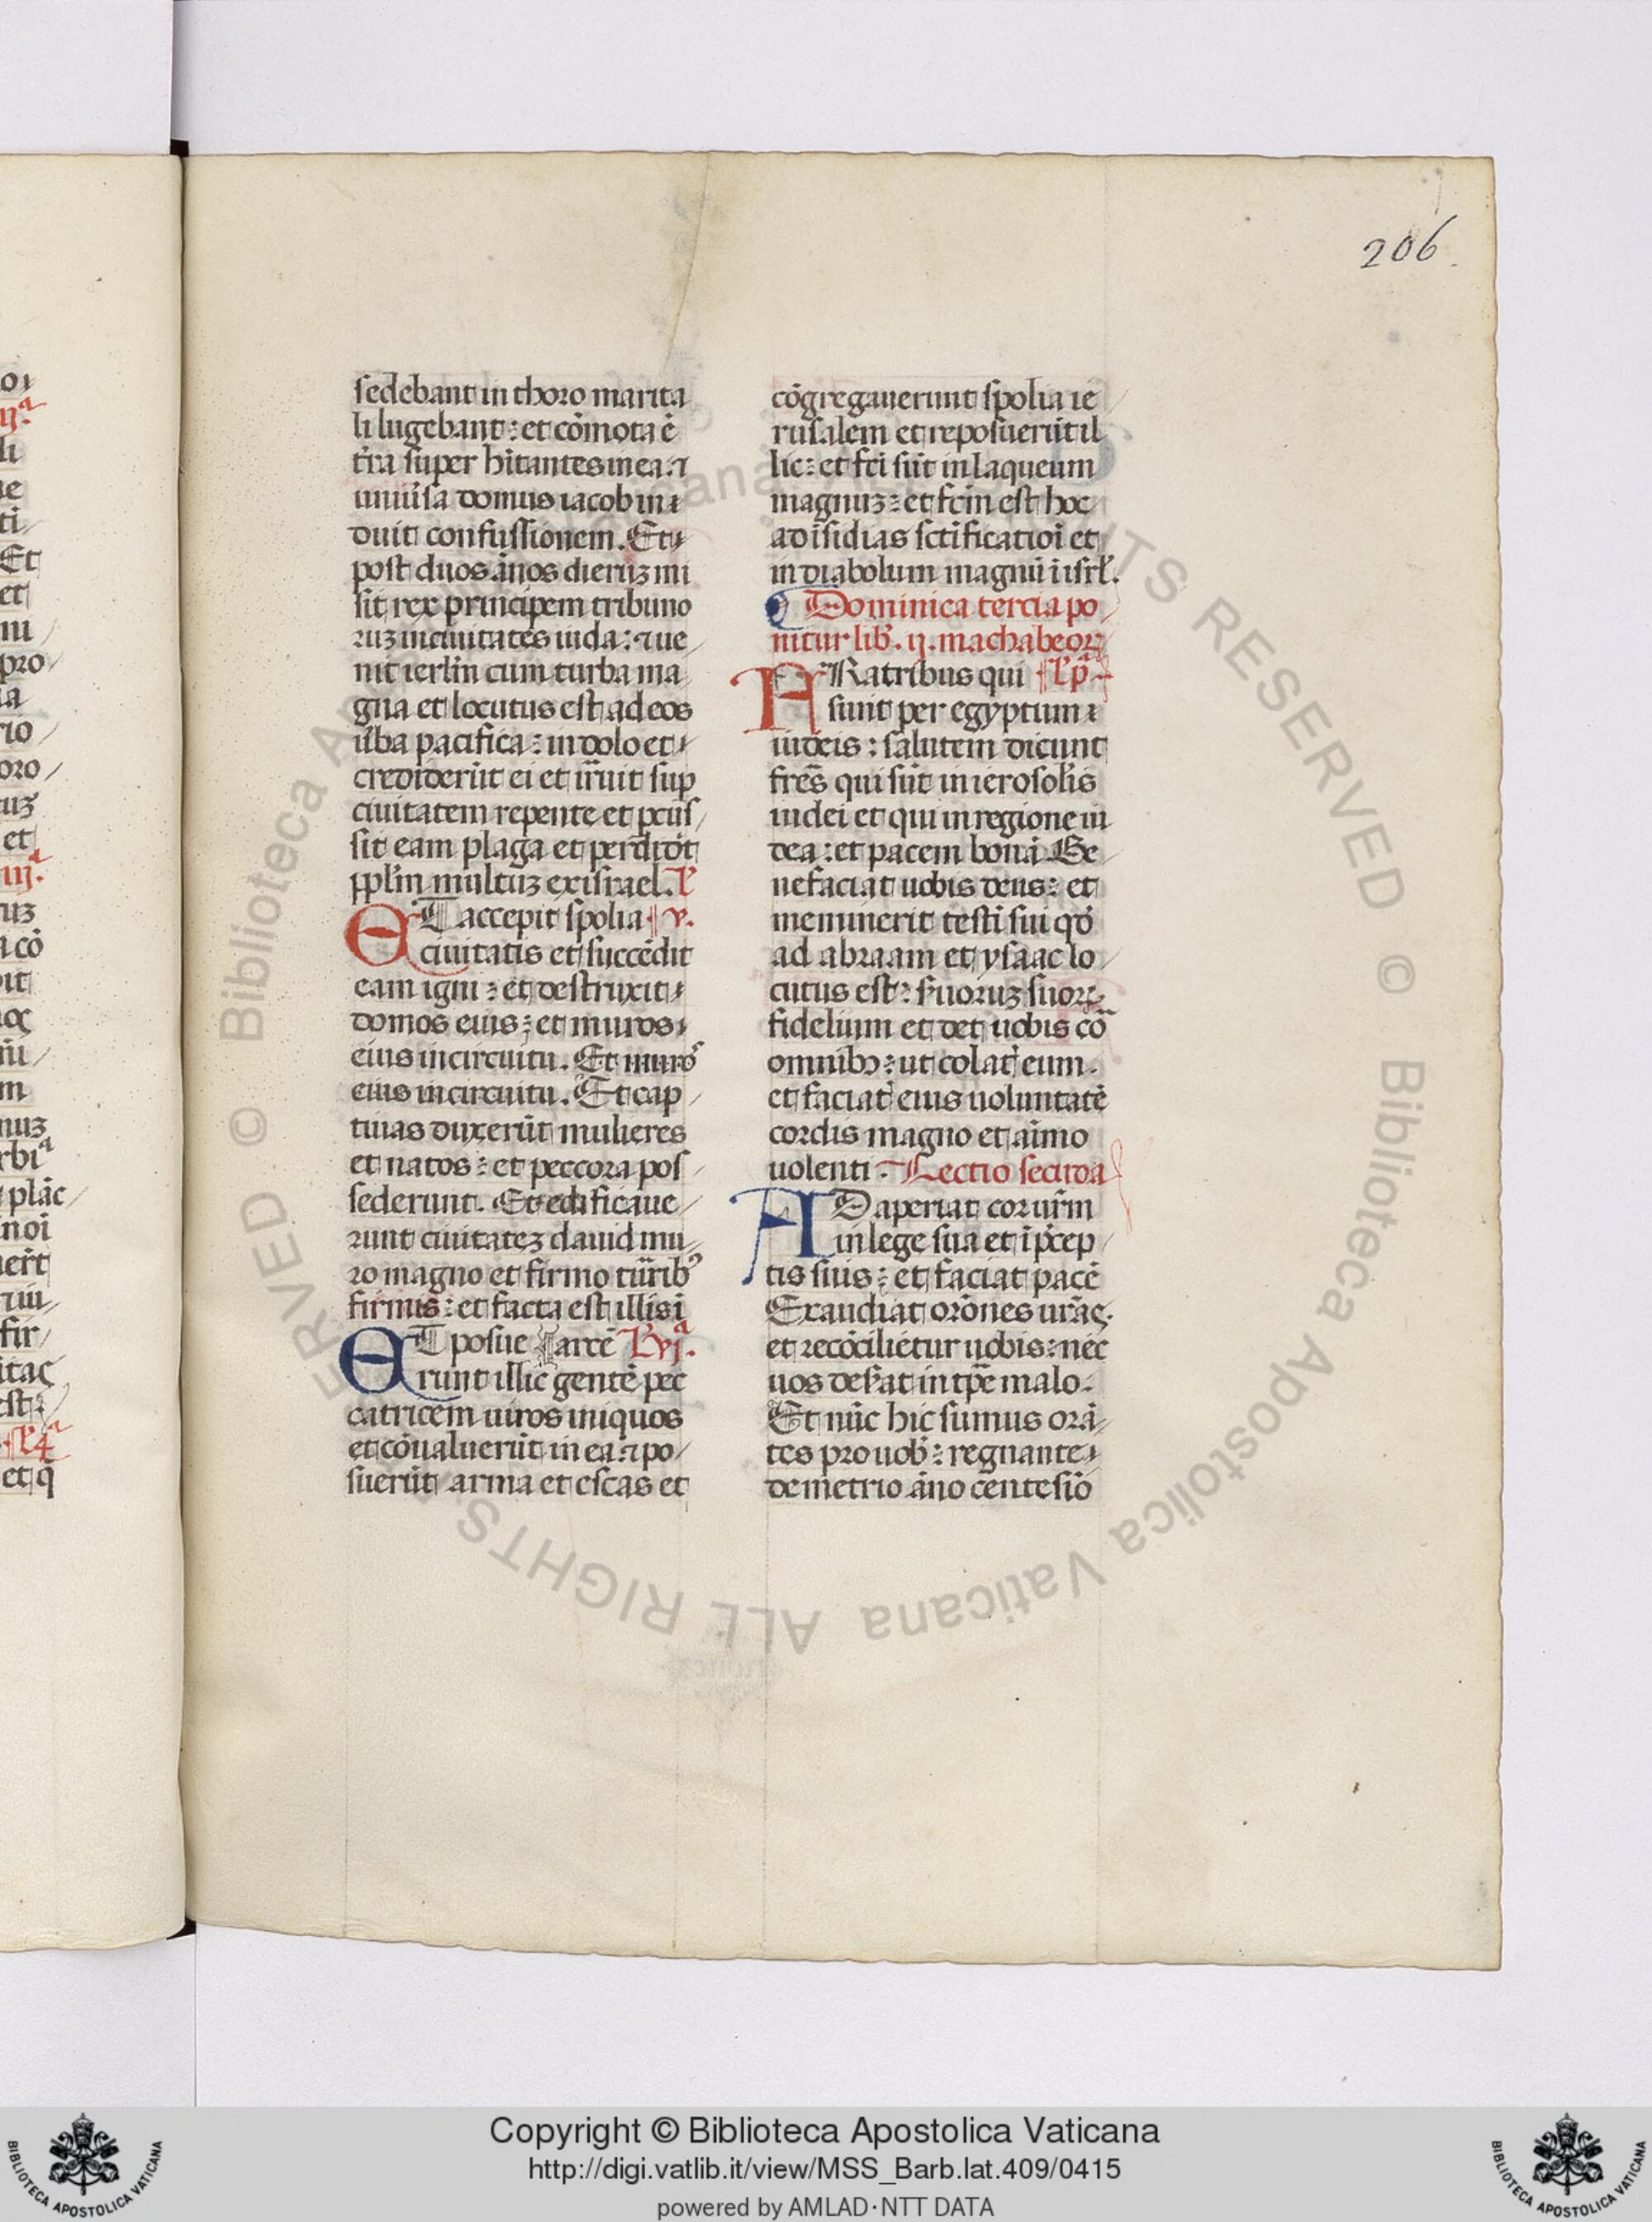 206.
sedebant in thoro marita
li lugebant: et cōmota ē
tr̄a super hītantes in ea. ⁊
uniūsa domus iacob in
duit confussionem. Et
post duos ānos dieruꝫ mi
sit rex principem tribuno
ruꝫ in ciuitates iuda: ⁊ ue
nit ierlm̄ cum turba ma
gna et locutus est ad eos
ūba pacifica: in dolo et
crediderūt ei et irruit sup
ciuitatem repente et pcus
sit eam plaga et perdidit
pplm̄ multuꝫ ex israel. L̄
ET accepit spolia v.
ciuitatis et succēdit
eam igni: et destruxit
domos eius: et muros
eius in circuitu. Et muros
eius in circuitu. Et cap
tiuas duxerūt mulieres
et natos: et peccora pos
sederunt. Et edificaue
runt ciuitateꝫ dauid mu
ro magno et firmo turribꝰ
firmis: et facta est illis ī
ET posue arcē L̄ vjᵃ.
runt illic gentē pec
catricem uiros iniquos
et cōualuerūt in ea. ⁊ po
suerūt arma et escas et
cōgregauerunt spolia ie
rusalem et reposuerūt il
lic: et fc̄i sūt in laqueum
magnuꝫ: et fcm̄ est hoc
ad īsidias sctīficatiōi et
in diabolum magnū ī isrl̄.
Dominica tercia po
nitur lib̄. ij. machabeoꝝ
FRatribus qui L̄ pᵃ
sunt per egyptum
iudeis: salutem dicunt
frēs qui sūt in ierosolis
iudei et qui in regione iu
dea: et pacem bonā Be
nefaciat uobis deus: et
meminerit testī sui qd̄
ad abraam et ysaac lo
cutus est: suoruꝫ suoꝝ
fidelium et det uobis cō
omnibꝫ: ut colat̄ eum.
et faciat̄ eius uoluntatē
cordis magno et aīmo
uolenti. Lectio secūda
ADaperiat cor ur̄m
in lege sua et ī p̄cep
tis suis: et faciat pacē
Exaudiat orōnes ur̄as.
et recōcilietur uobis: nec
uos deserat in tpē malo.
Et nūc hic sumus orā
tes pro uob̄: regnante
demetrio āno centesīo
Copyright © Biblioteca Apostolica Vaticana
http://digi.vatlib.it/view/MSS_Barb.lat.409/0415
powered by AMLAD·NTT DATA